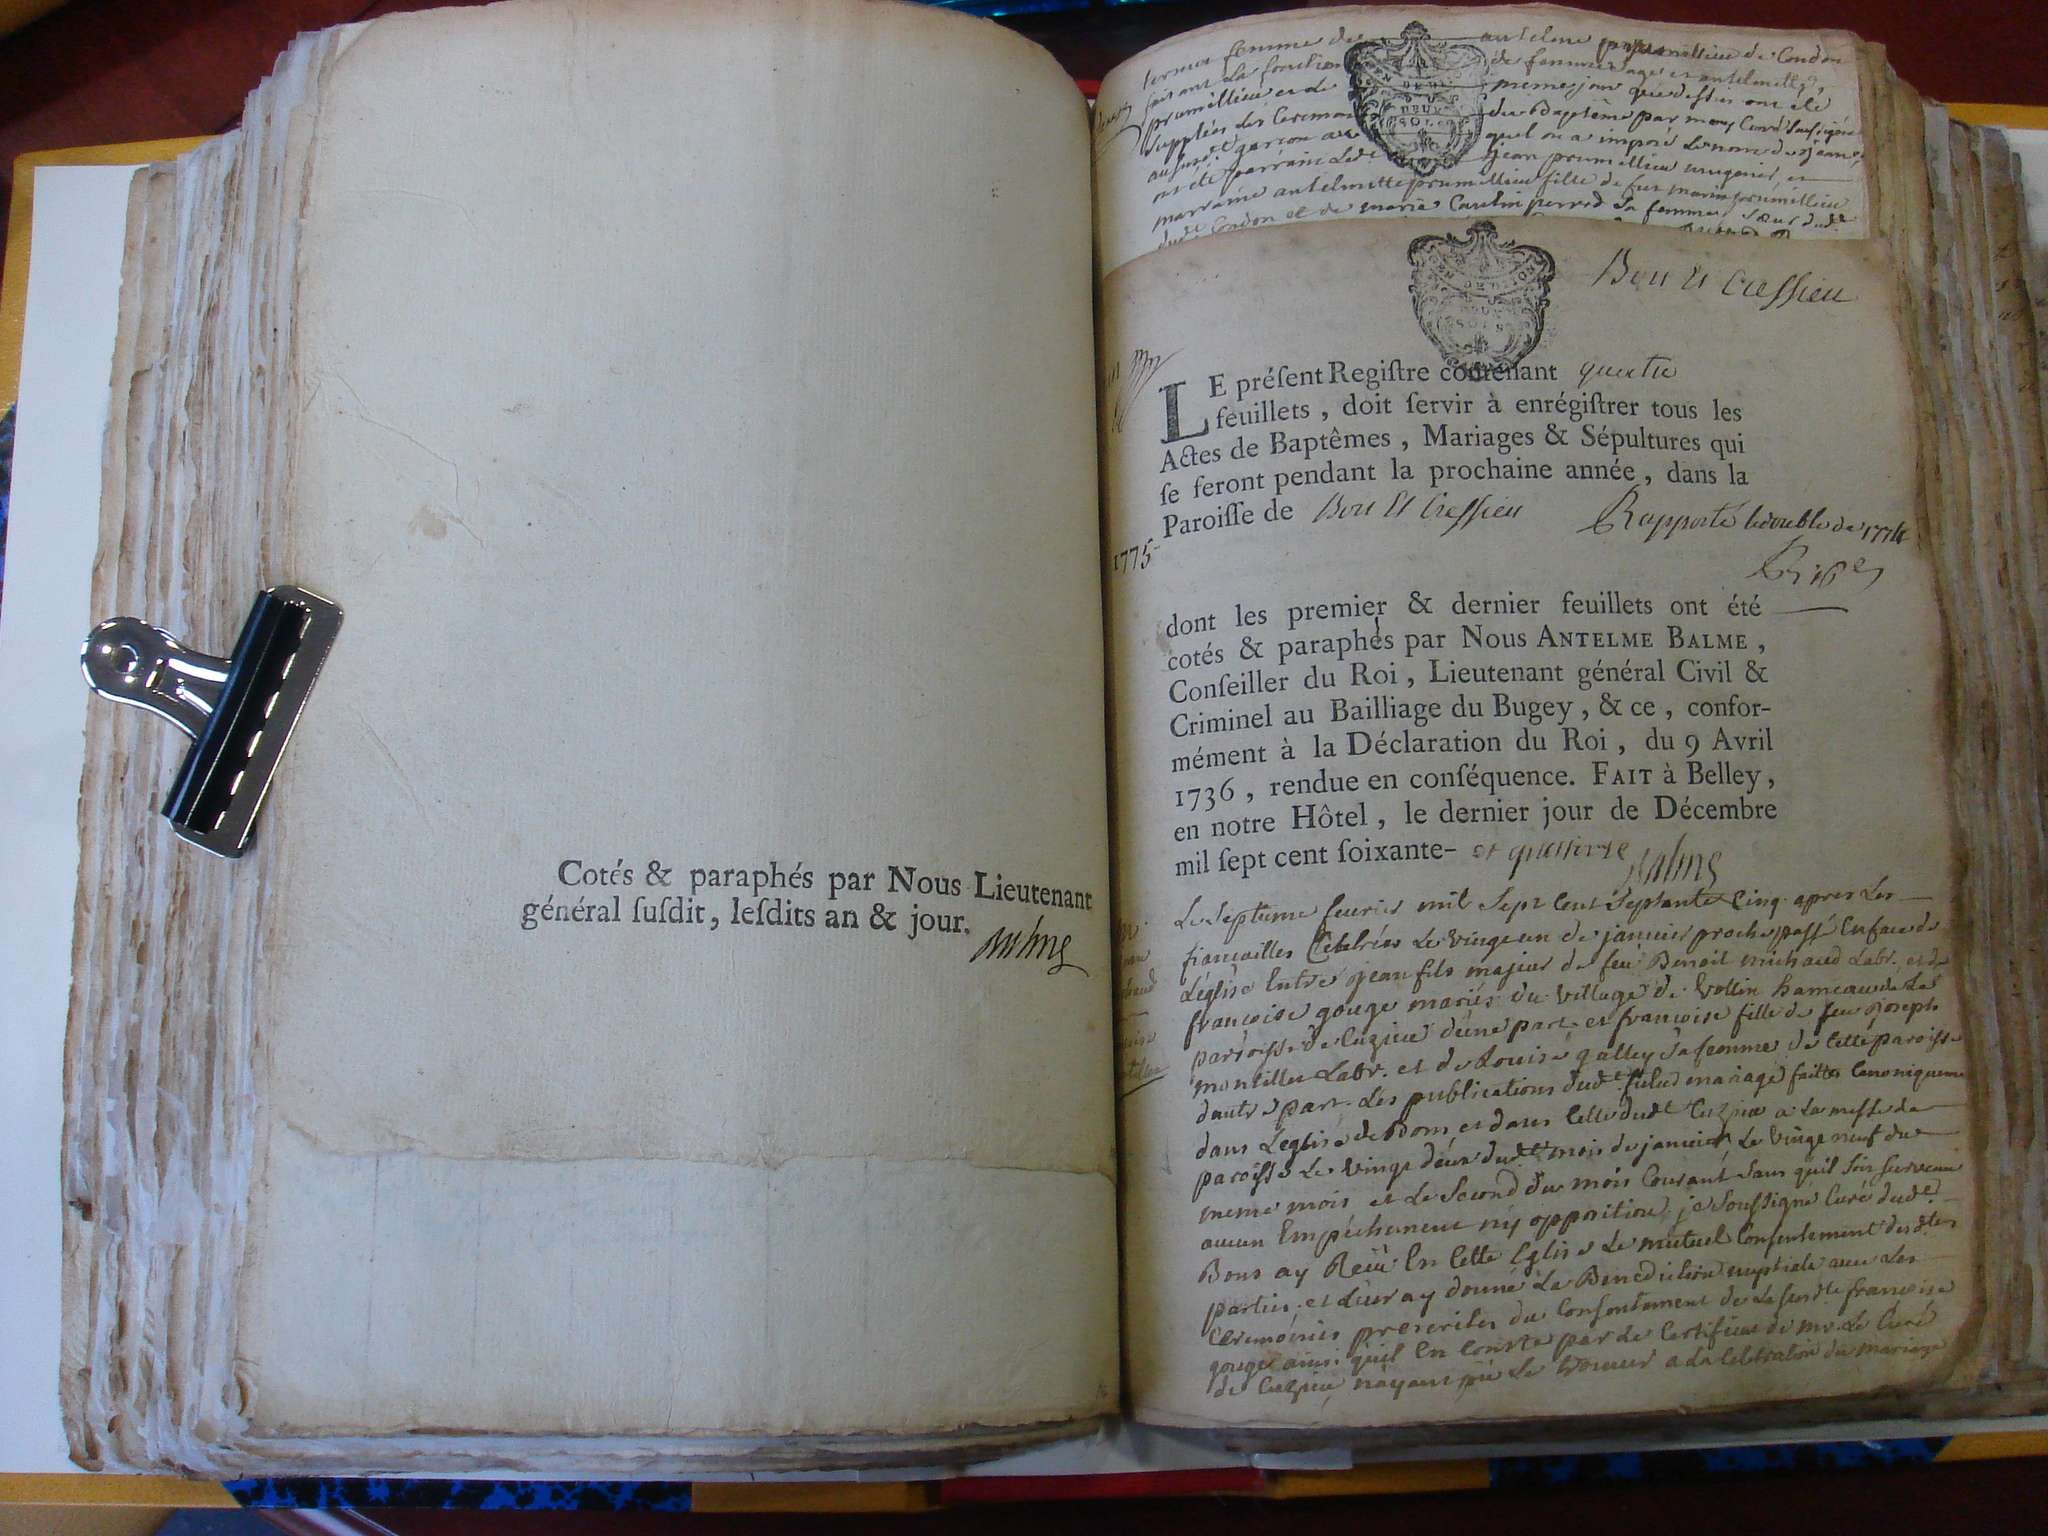 Cotés & paraphés par Nous Lieutenant
général ſuſdit, leſdits an & jour.
Balme
femme de antelme prumillieu de Condon
faisant la fonction de femme sage et antelmette
prumillieu et de meme jour que dessus ont été
supplées les Ceremonies du Baptême par moy Curé soussigné
au susdt garçon auquel on a imposé le nom de jean
ont été parrain ledt jean prumillieu et
marraine antelmette prumillieu fille de feu marin prumillieu
dudt Condon et de marie Caulin perrod sa femme sœur dudt
GEN DE DI
DEUX
SOLS
Bon St Cressieu
LE préſent Regiſtre contenant quatre
feuillets, doit ſervir à enrégiſtrer tous les
Actes de Baptêmes, Mariages & Sépultures qui
ſe feront pendant la prochaine année, dans la
Paroiſſe de Bon St Cressieu Rapporté le double de 1774
1775
dont les premier & dernier feuillets ont été
cotés & paraphés par Nous ANTELME BALME,
Conſeiller du Roi, Lieutenant général Civil &
Criminel au Bailliage du Bugey, & ce, confor-
mément à la Déclaration du Roi, du 9 Avril
1736, rendue en conſéquence. FAIT à Belley,
en notre Hôtel, le dernier jour de Décembre
mil ſept cent ſoixante- et quatorze Balme
Le septieme feurier mil sept cent septante cinq apres les
fiancailles Celebrées le vingt un de janvier proche passé En face de
L'église Entre jean fils majeur de feu Benoit michaud Labr. et de
francoise gouge mariés du village de vollin hameau de La
paroisse de Cuzieu d'une part et francoise fille de feu joseph
montillet Labr. et de Louise galley sa femme de cette paroisse
d'autre part. Les publications dudt futur mariage faittes Canoniquement
dans L'eglise de Bons et dans Celle dudt Cuzieu a la messe de
paroisse Le vingt deux dudt mois de janvier Le vingt neuf du
meme mois et Le second du mois Courant sans quil soit survenu
aucun Empechement ny opposition je soussigné Curé dudt
Bons ay Reçu En Cette Eglise Le mutuel Consentement desdtes
parties et Leur ay donné La Benediction nuptiale avec Les
Ceremonies prescrites du Consentement de La susdte francoise
gouge ainsi quil En conste par Le Certificat de mr. Le Curé
de Cuzieu nayant pu se trouver a la Celebration du mariage